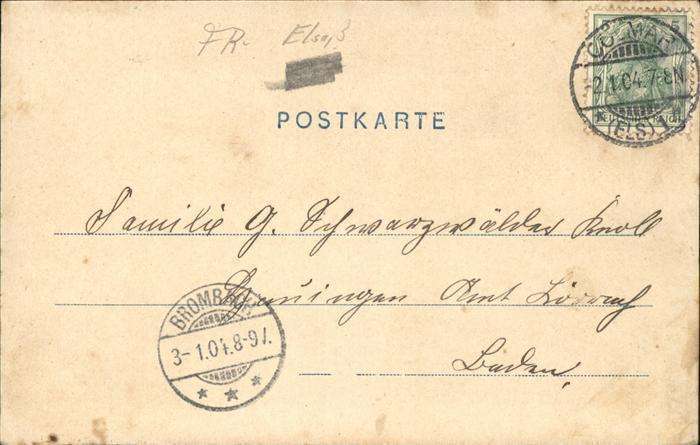 FR. Elsaß
POSTKARTE
COLMAR
2.1.04.7-8N
(ELS)
Familie G. Schwarzwälder Knoll
Amt Lörrach
Baden,
BROMBACH
3-1.04.8-9V.
* * *